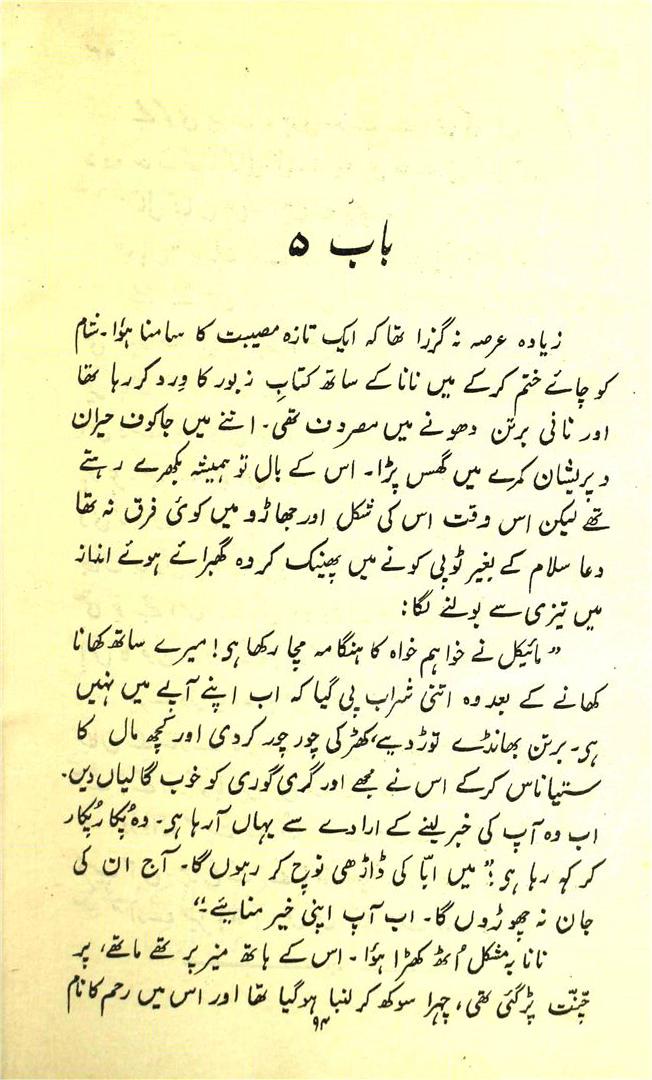 باب ۵
زیادہ عرصہ نہ گزرا تھا کہ ایک تازہ مصیبت کا سامنا ہؤا۔ شام
کو چائے ختم کرکے میں نانا کے ساتھ کتابِ زبور کا وِرد کر رہا تھا
اور نانی برتن دھونے میں مصروف تھی۔ اتنے میں جاکوف حیران
و پریشان کمرے میں گھس پڑا۔ اس کے بال تو ہمیشہ بکھرے رہتے
تھے لیکن اس وقت اس کی شکل اور جھاڑو میں کوئی فرق نہ تھا
دعا سلام کے بغیر ٹوپی کونے میں پھینک کر وہ گھبرائے ہوئے انداز
میں تیزی سے بولنے لگا:
”مائیکل نے خواہم خواہ کا ہنگامہ مچا رکھا ہی! میرے ساتھ کھانا
کھانے کے بعد وہ اتنی شراب پی گیا کہ اب اپنے آپے میں نہیں
ہی۔ برتن بھانڈے توڑ دیے، کھڑکی چور چور کردی اور کچھ مال کا
ستیاناس کرکے اس نے مجھے اور گری گوری کو خوب گالیاں دیں۔
اب وہ آپ کی خبر لینے کے ارادے سے یہاں آرہا ہی۔ وہ پُکار پُکار
کر کہہ رہا ہی:” میں ابّا کی ڈاڑھی نوچ کر رہوں گا۔ آج ان کی
جان نہ چھوڑوں گا۔ اب آپ اپنی خیر منائیے۔“
نانا بہ مشکل اُٹھ کھڑا ہؤا۔ اس کے ہاتھ میز پر تھے ماتھے، پر
چنّت پڑگئی تھی، چہرا سوکھ کر لنبا ہوگیا تھا اور اس میں رحم کا نام
۹۴